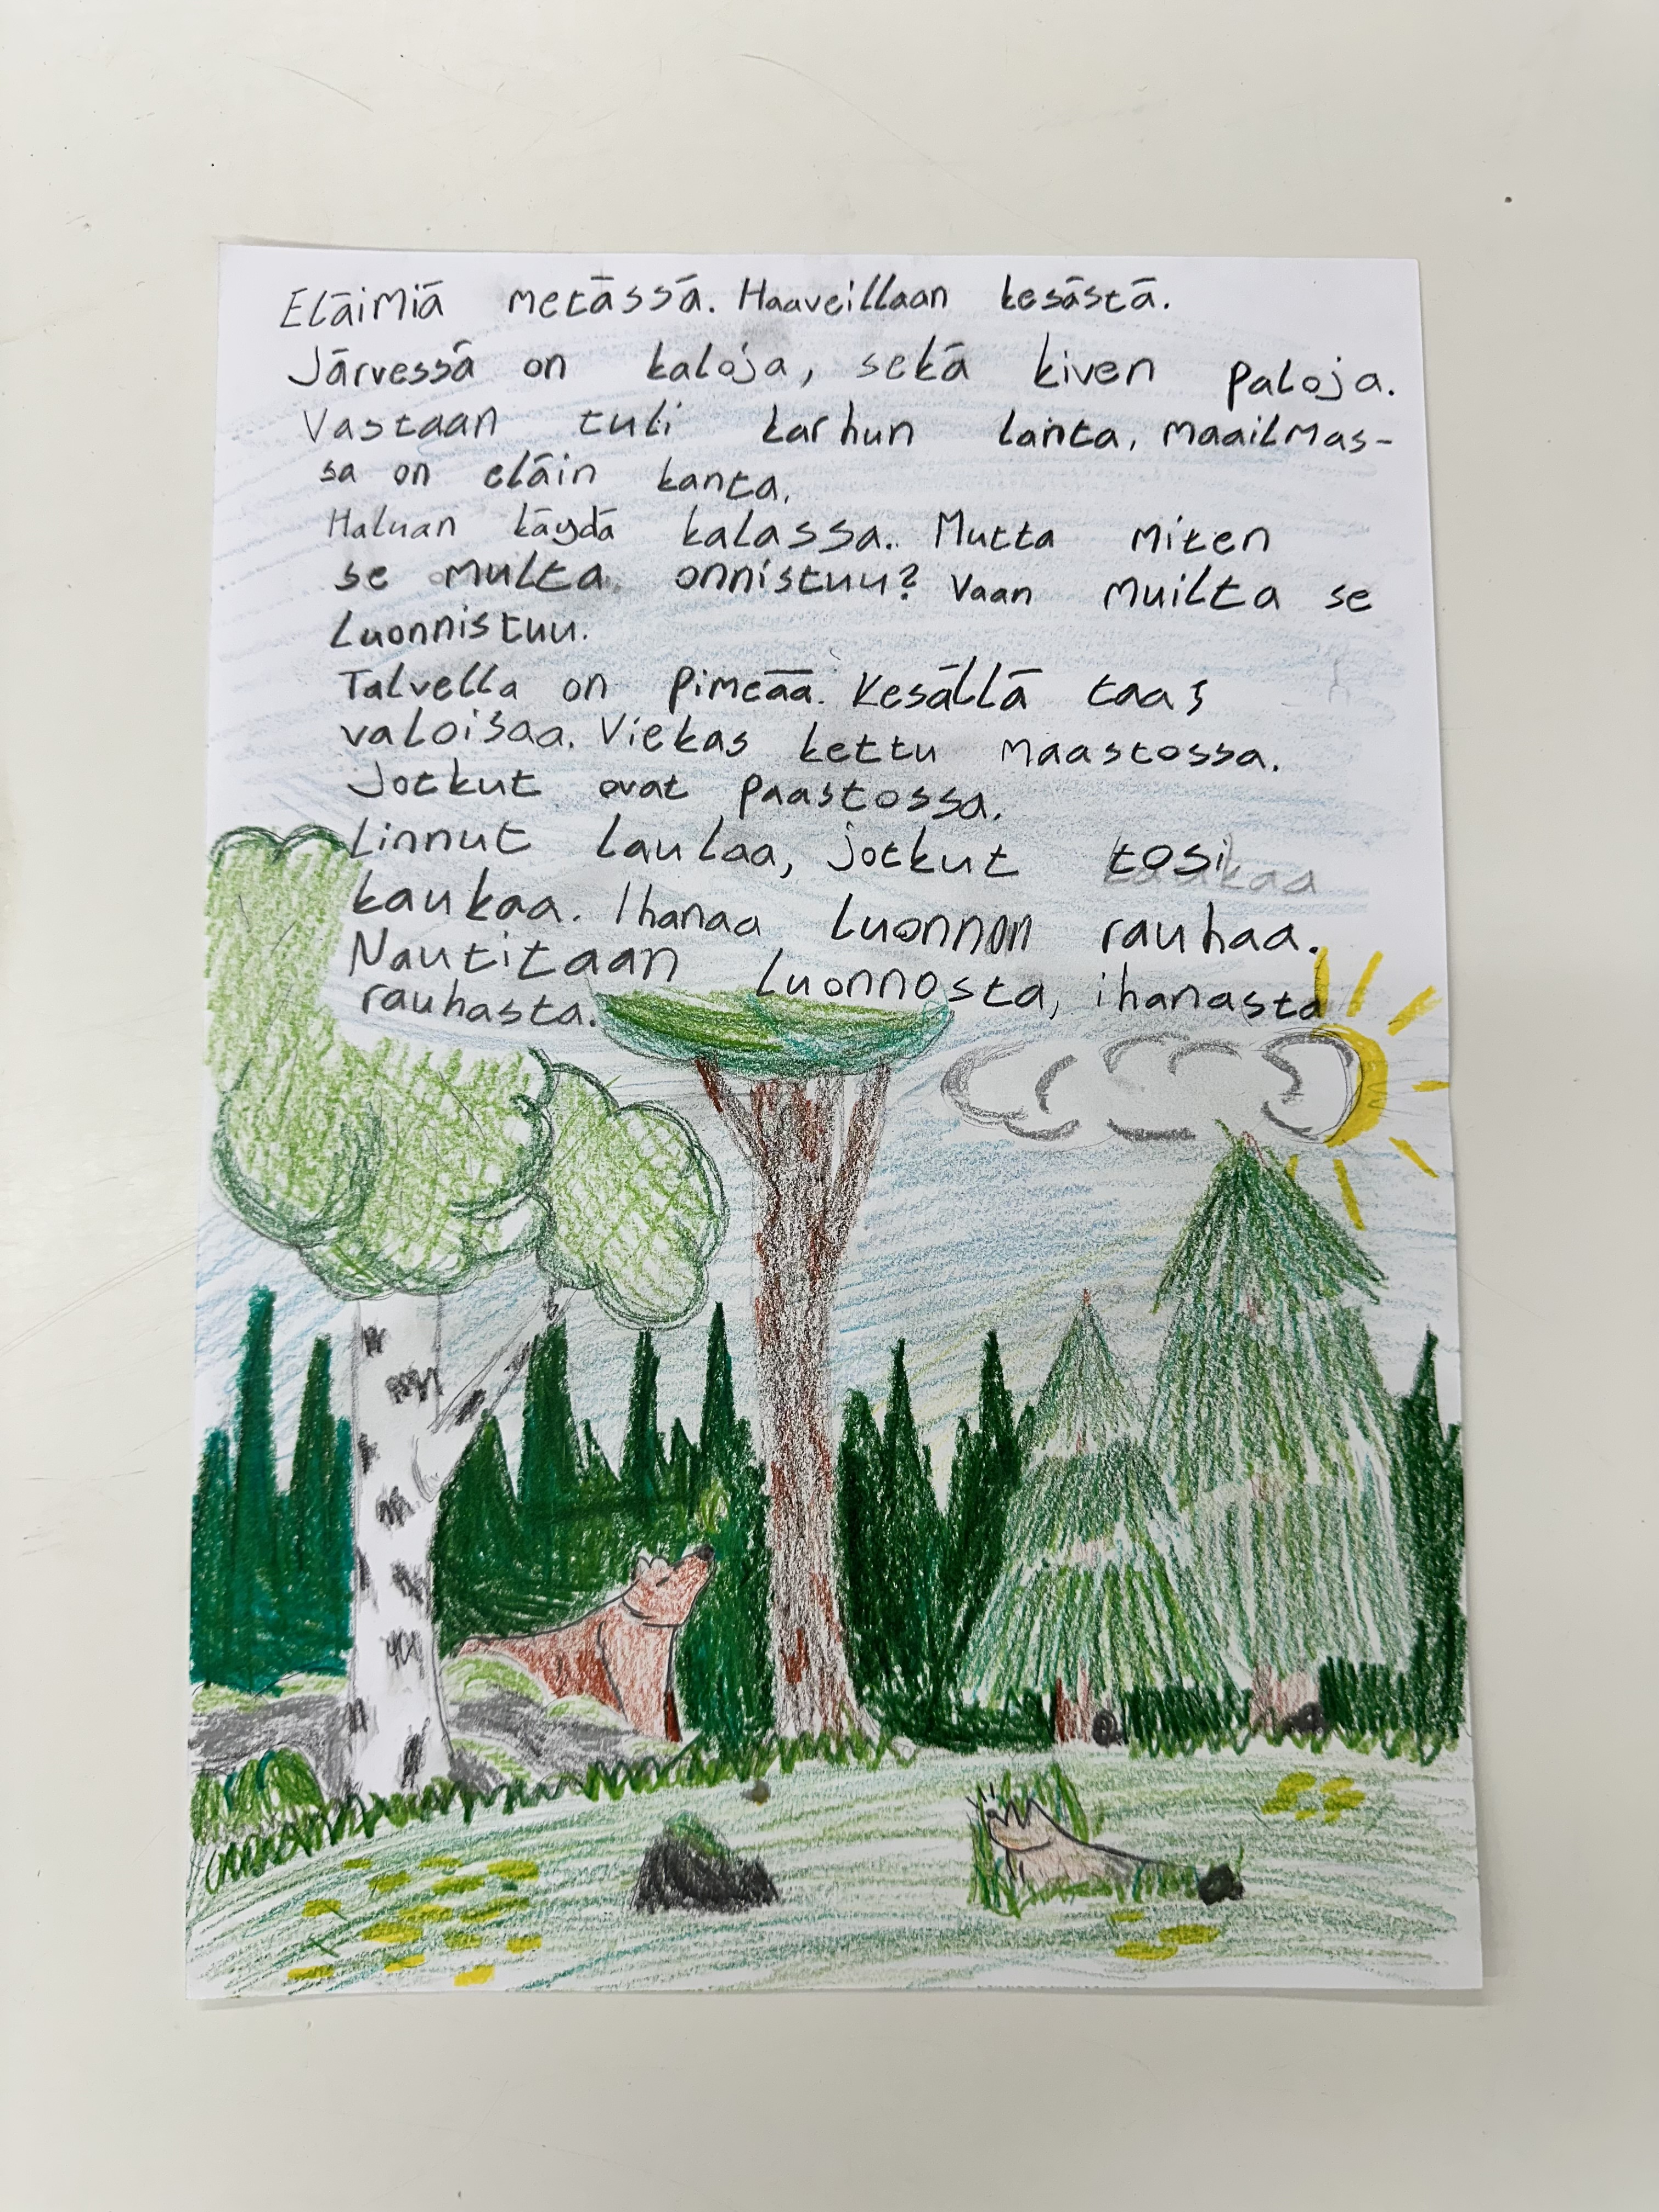 Eläimiä metässä. Haaveillaan kesästä.
Järvessä on kaloja, sekä kiven paloja.
Vastaan tuli karhun lanta, maailmas-
sa on eläin kanta.
Haluan käydä kalassa. Mutta miten
se multa onnistuu? Vaan muilta se
luonnistuu.
Talvella on pimeää. Kesällä taas
valoisaa. Viekas kettu maastossa.
Jotkut ovat paastossa.
Linnut laulaa, jotkut tosi
kaukaa. Ihanaa luonnon rauhaa.
Nautitaan luonnosta, ihanasta
rauhasta.